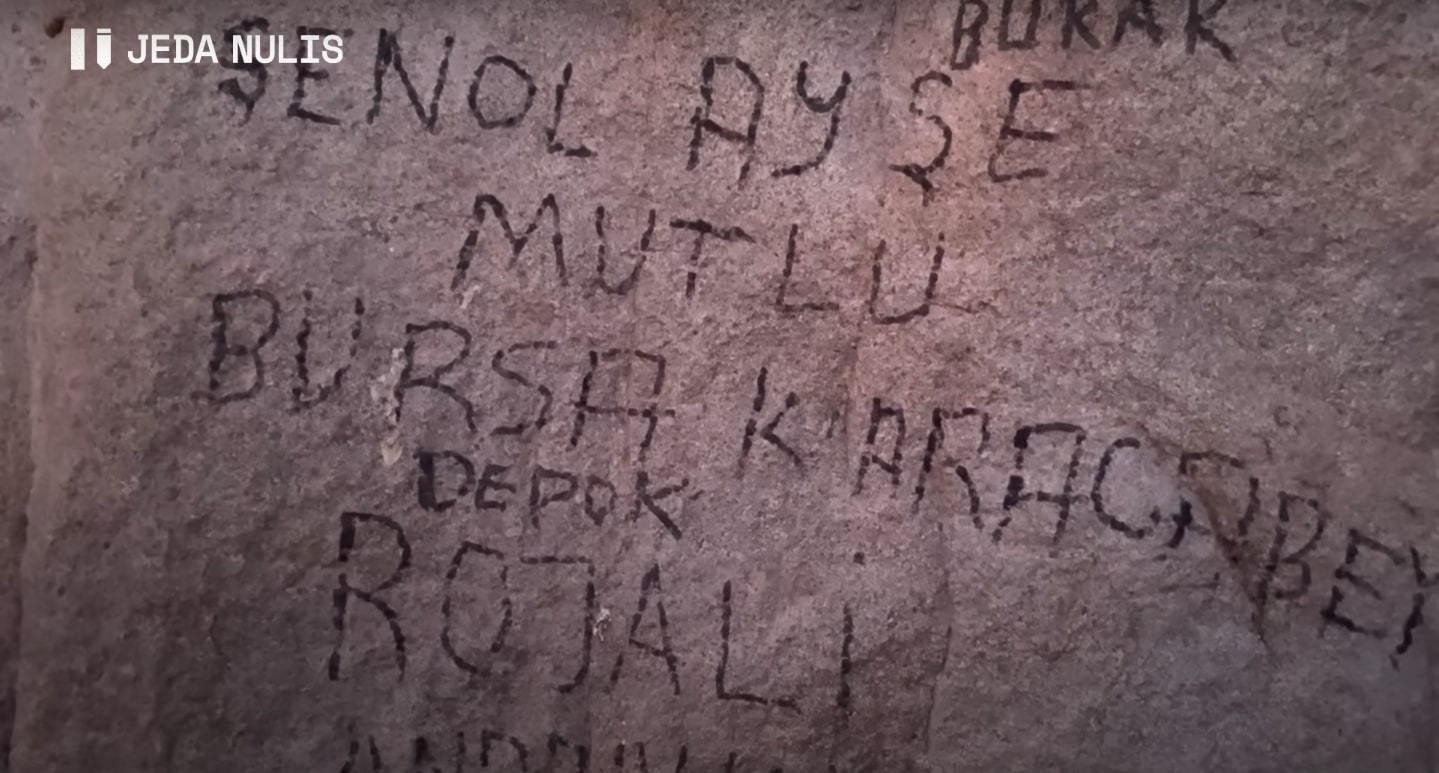 JEDA NULIS
BURAK
ŞENOL AYŞE
MUTLU
BURSA KARACABEY
DEPOK
ROJALi